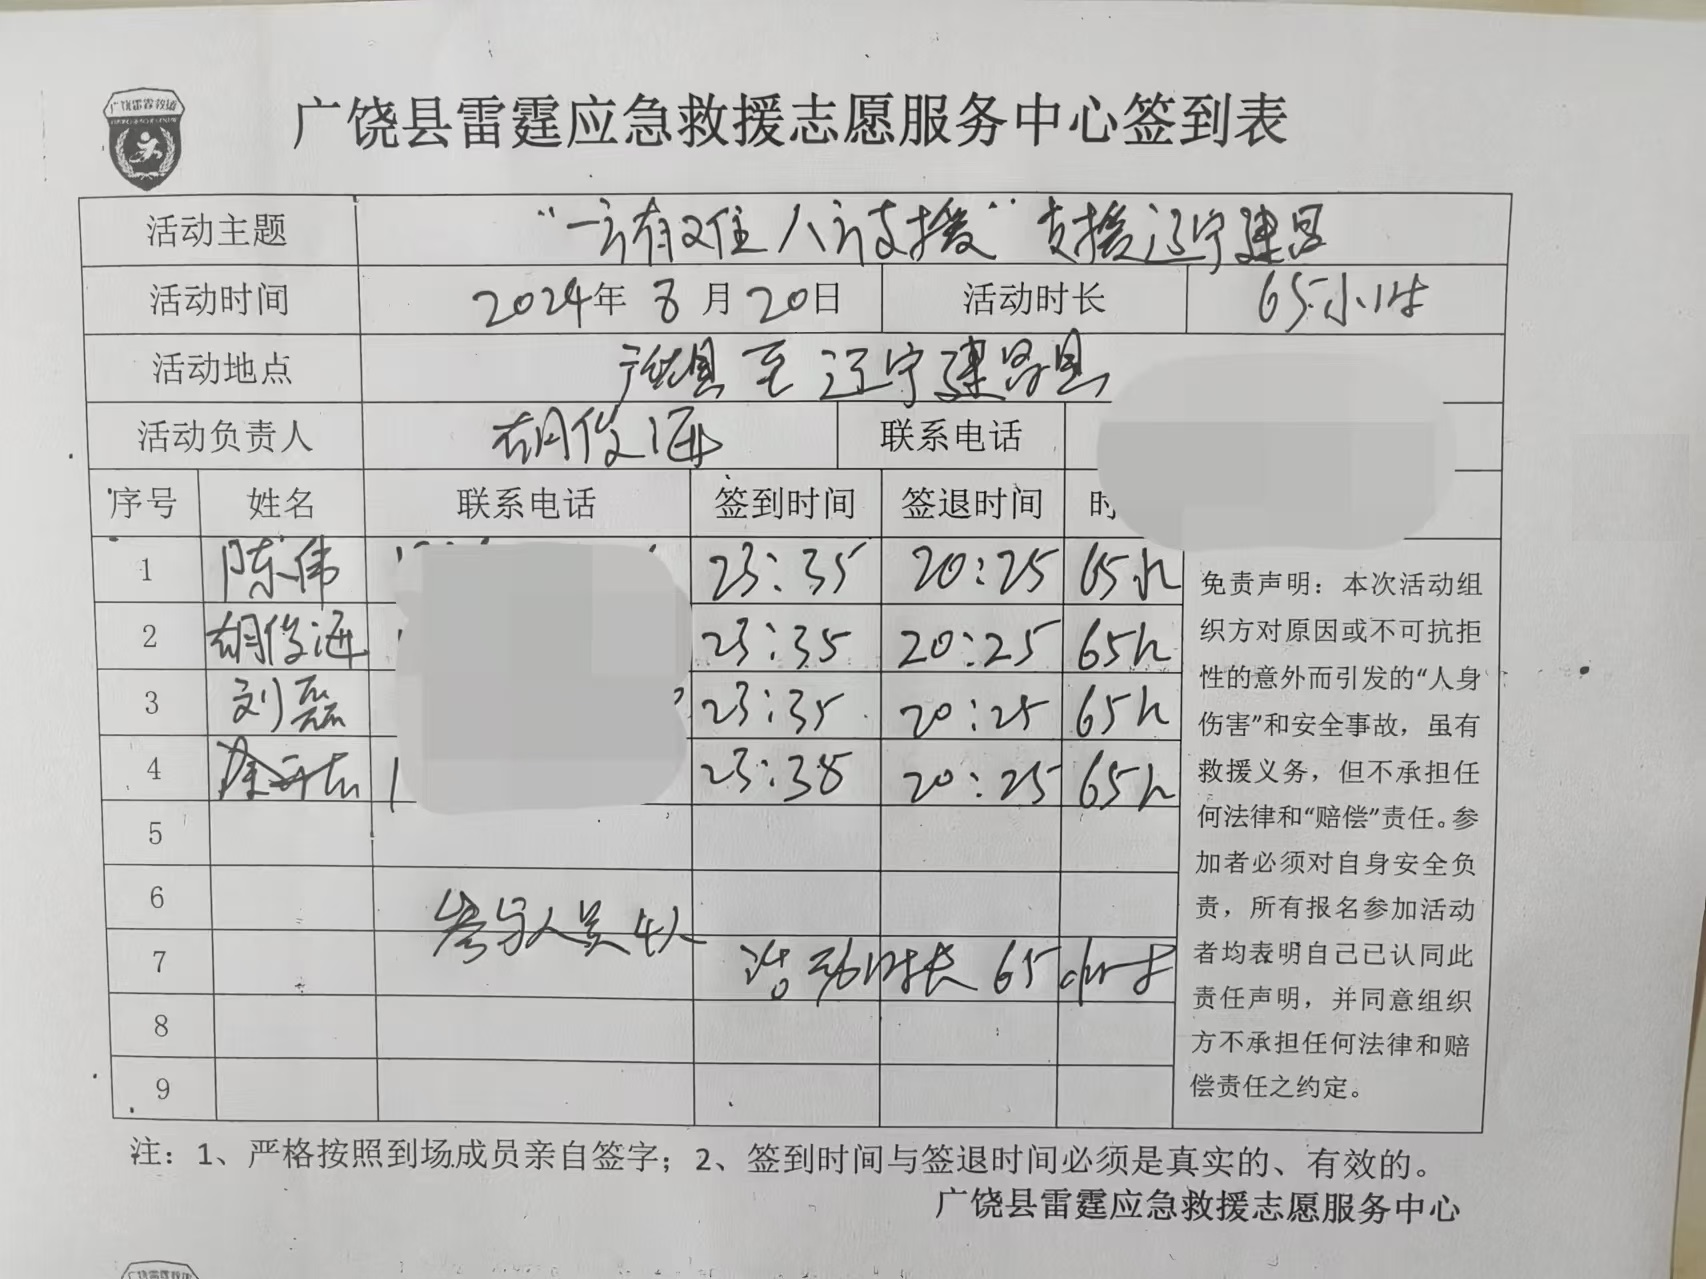 广饶雷霆救援
广饶县雷霆应急救援志愿服务中心签到表
活动主题 “一方有难 八方支援” 支援辽宁建昌
活动时间 2024年 8月20日 活动时长 65小时
活动地点 广饶县至辽宁建昌县
活动负责人 胡俊海 联系电话
序号 姓名 联系电话 签到时间 签退时间 时
1 陈伟 23:35 20:25 65h
2 胡俊海 23:35 20:25 65h
3 刘磊 23:35 20:25 65h
4 23:38 20:25 65h
5
6 参与人员4人
7 活动时长 65小时
8
9
免责声明：本次活动组
织方对原因或不可抗拒
性的意外而引发的“人身
伤害”和安全事故，虽有
救援义务，但不承担任
何法律和“赔偿”责任。参
加者必须对自身安全负
责，所有报名参加活动
者均表明自己已认同此
责任声明，并同意组织
方不承担任何法律和赔
偿责任之约定。
注：1、严格按照到场成员亲自签字；2、签到时间与签退时间必须是真实的、有效的。
广饶县雷霆应急救援志愿服务中心